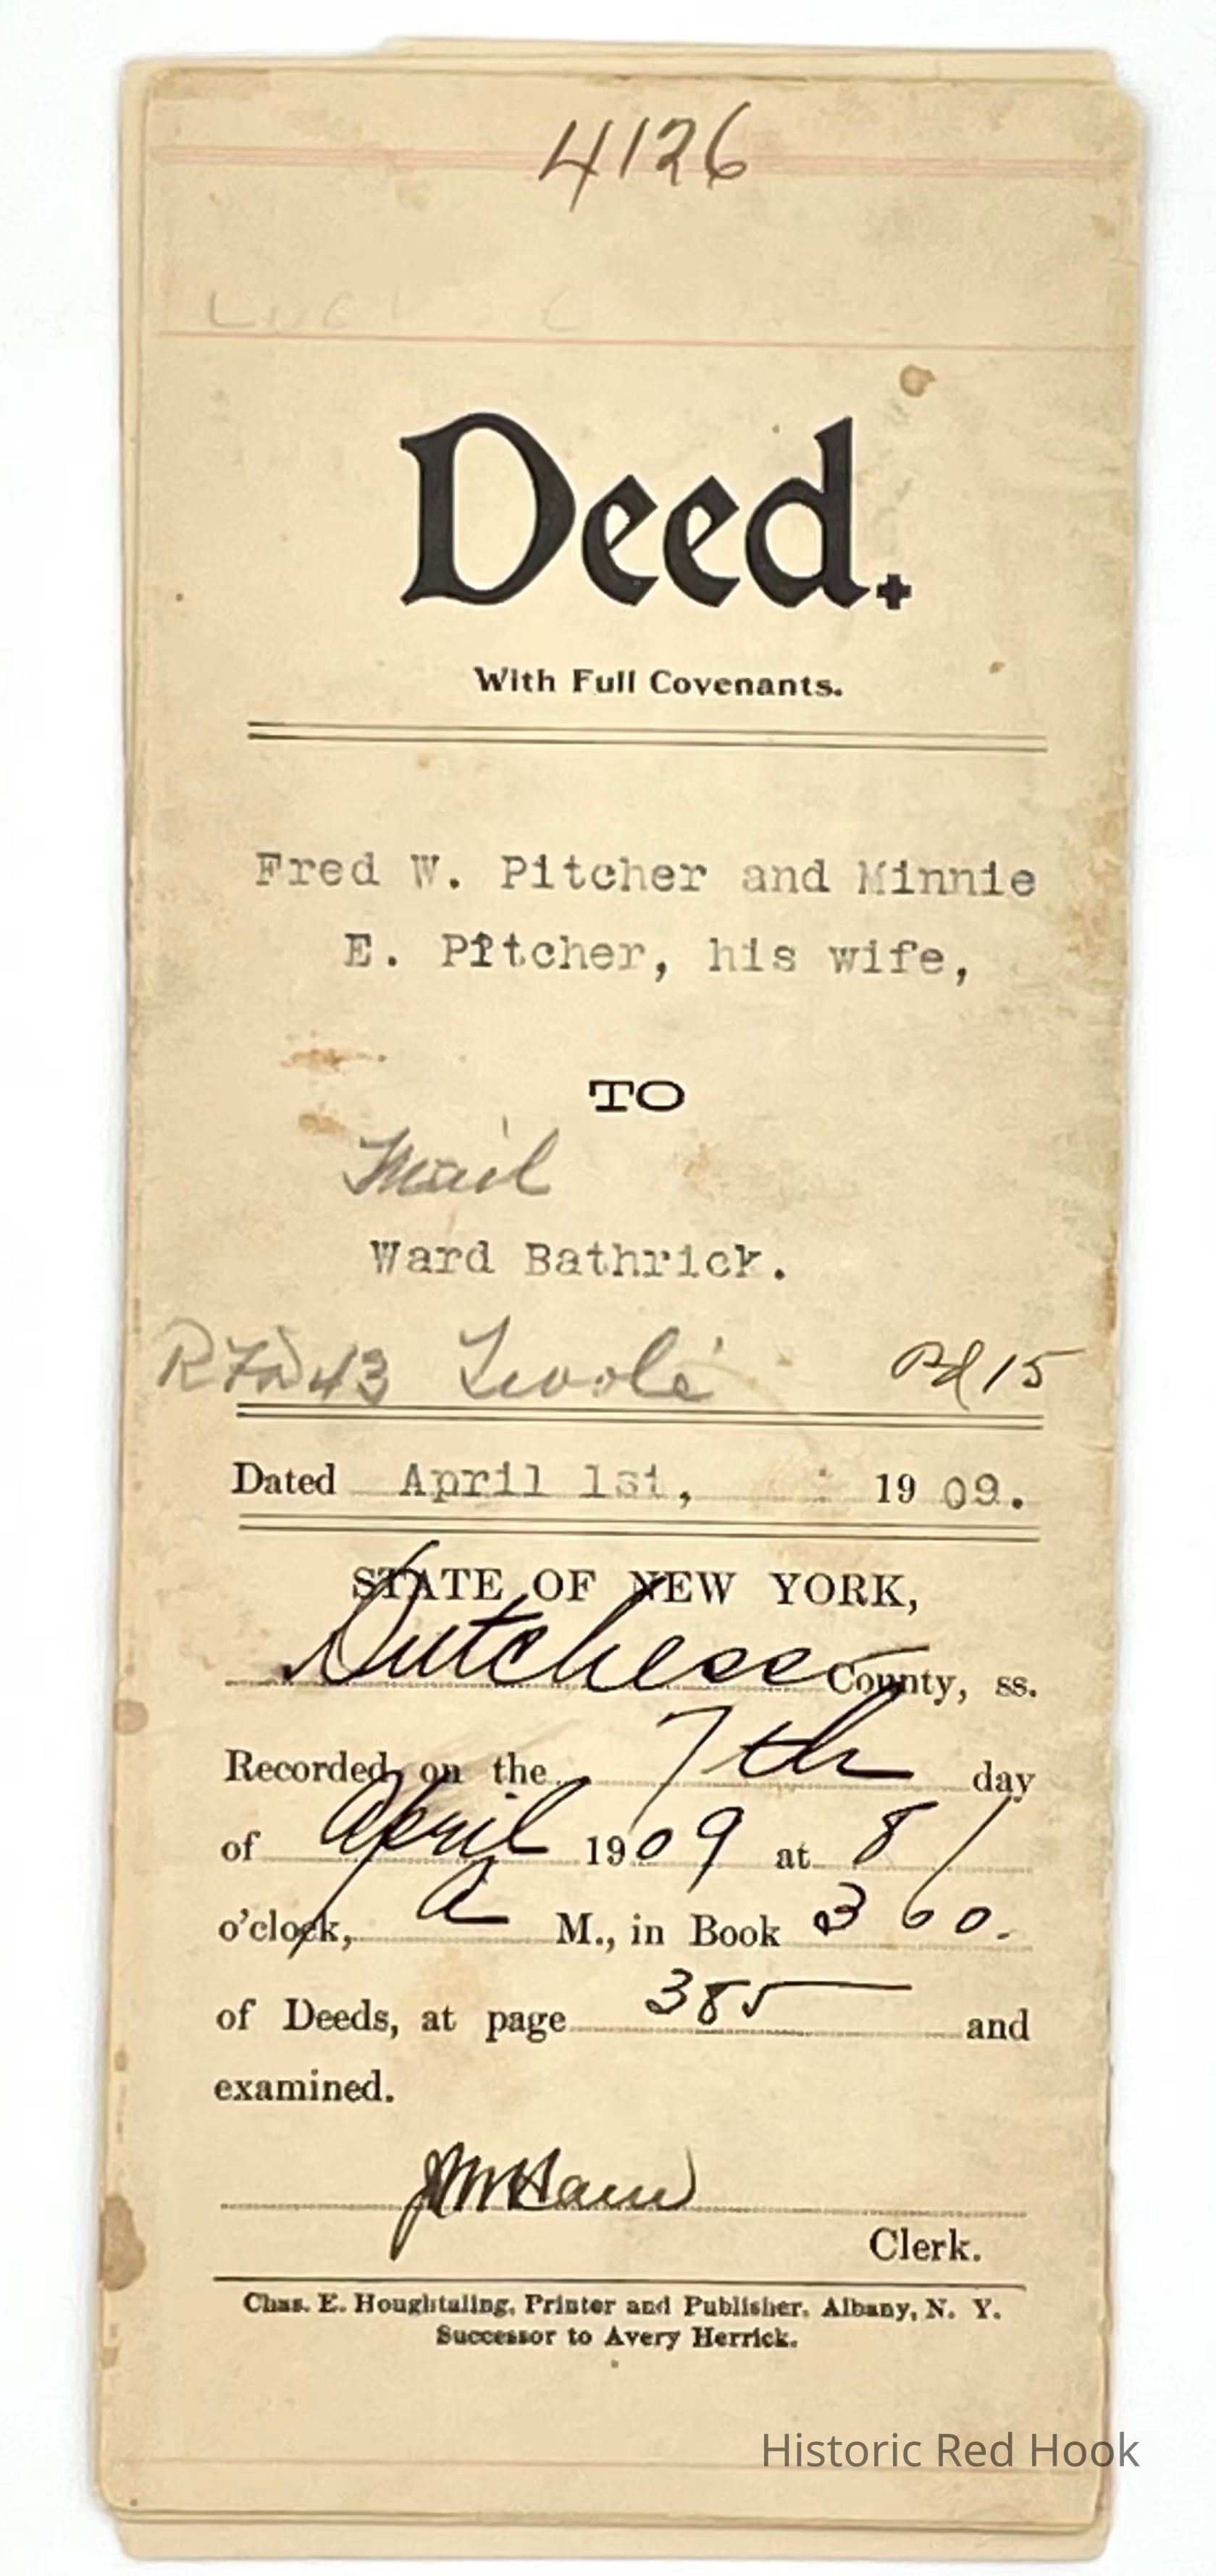 4126
Deed.
With Full Covenants.
Fred W. Pitcher and Minnie
E. Pitcher, his wife,
TO
Mail
Ward Bathrick.
RFD 43 Tivoli Pd 15
Dated April 1st, 1909.
STATE OF NEW YORK,
Dutchess County, ss.
Recorded on the 7th day
of April 1909 at 8
o'clock, A M., in Book 360.
of Deeds, at page 385 and
examined.
J M Ham
Clerk.
Chas. E. Houghtaling, Printer and Publisher, Albany, N. Y.
Successor to Avery Herrick.
Historic Red Hook